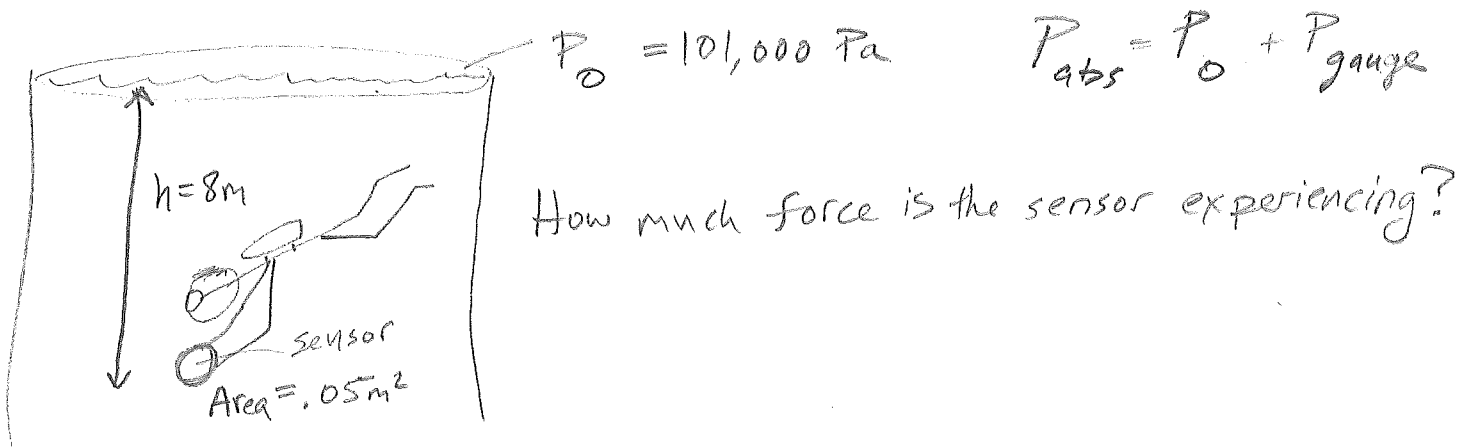 P₀ = 101,000 Pa
P_abs = P₀ + P_gauge
h=8m
How much force is the sensor experiencing?
sensor
Area=.05m²